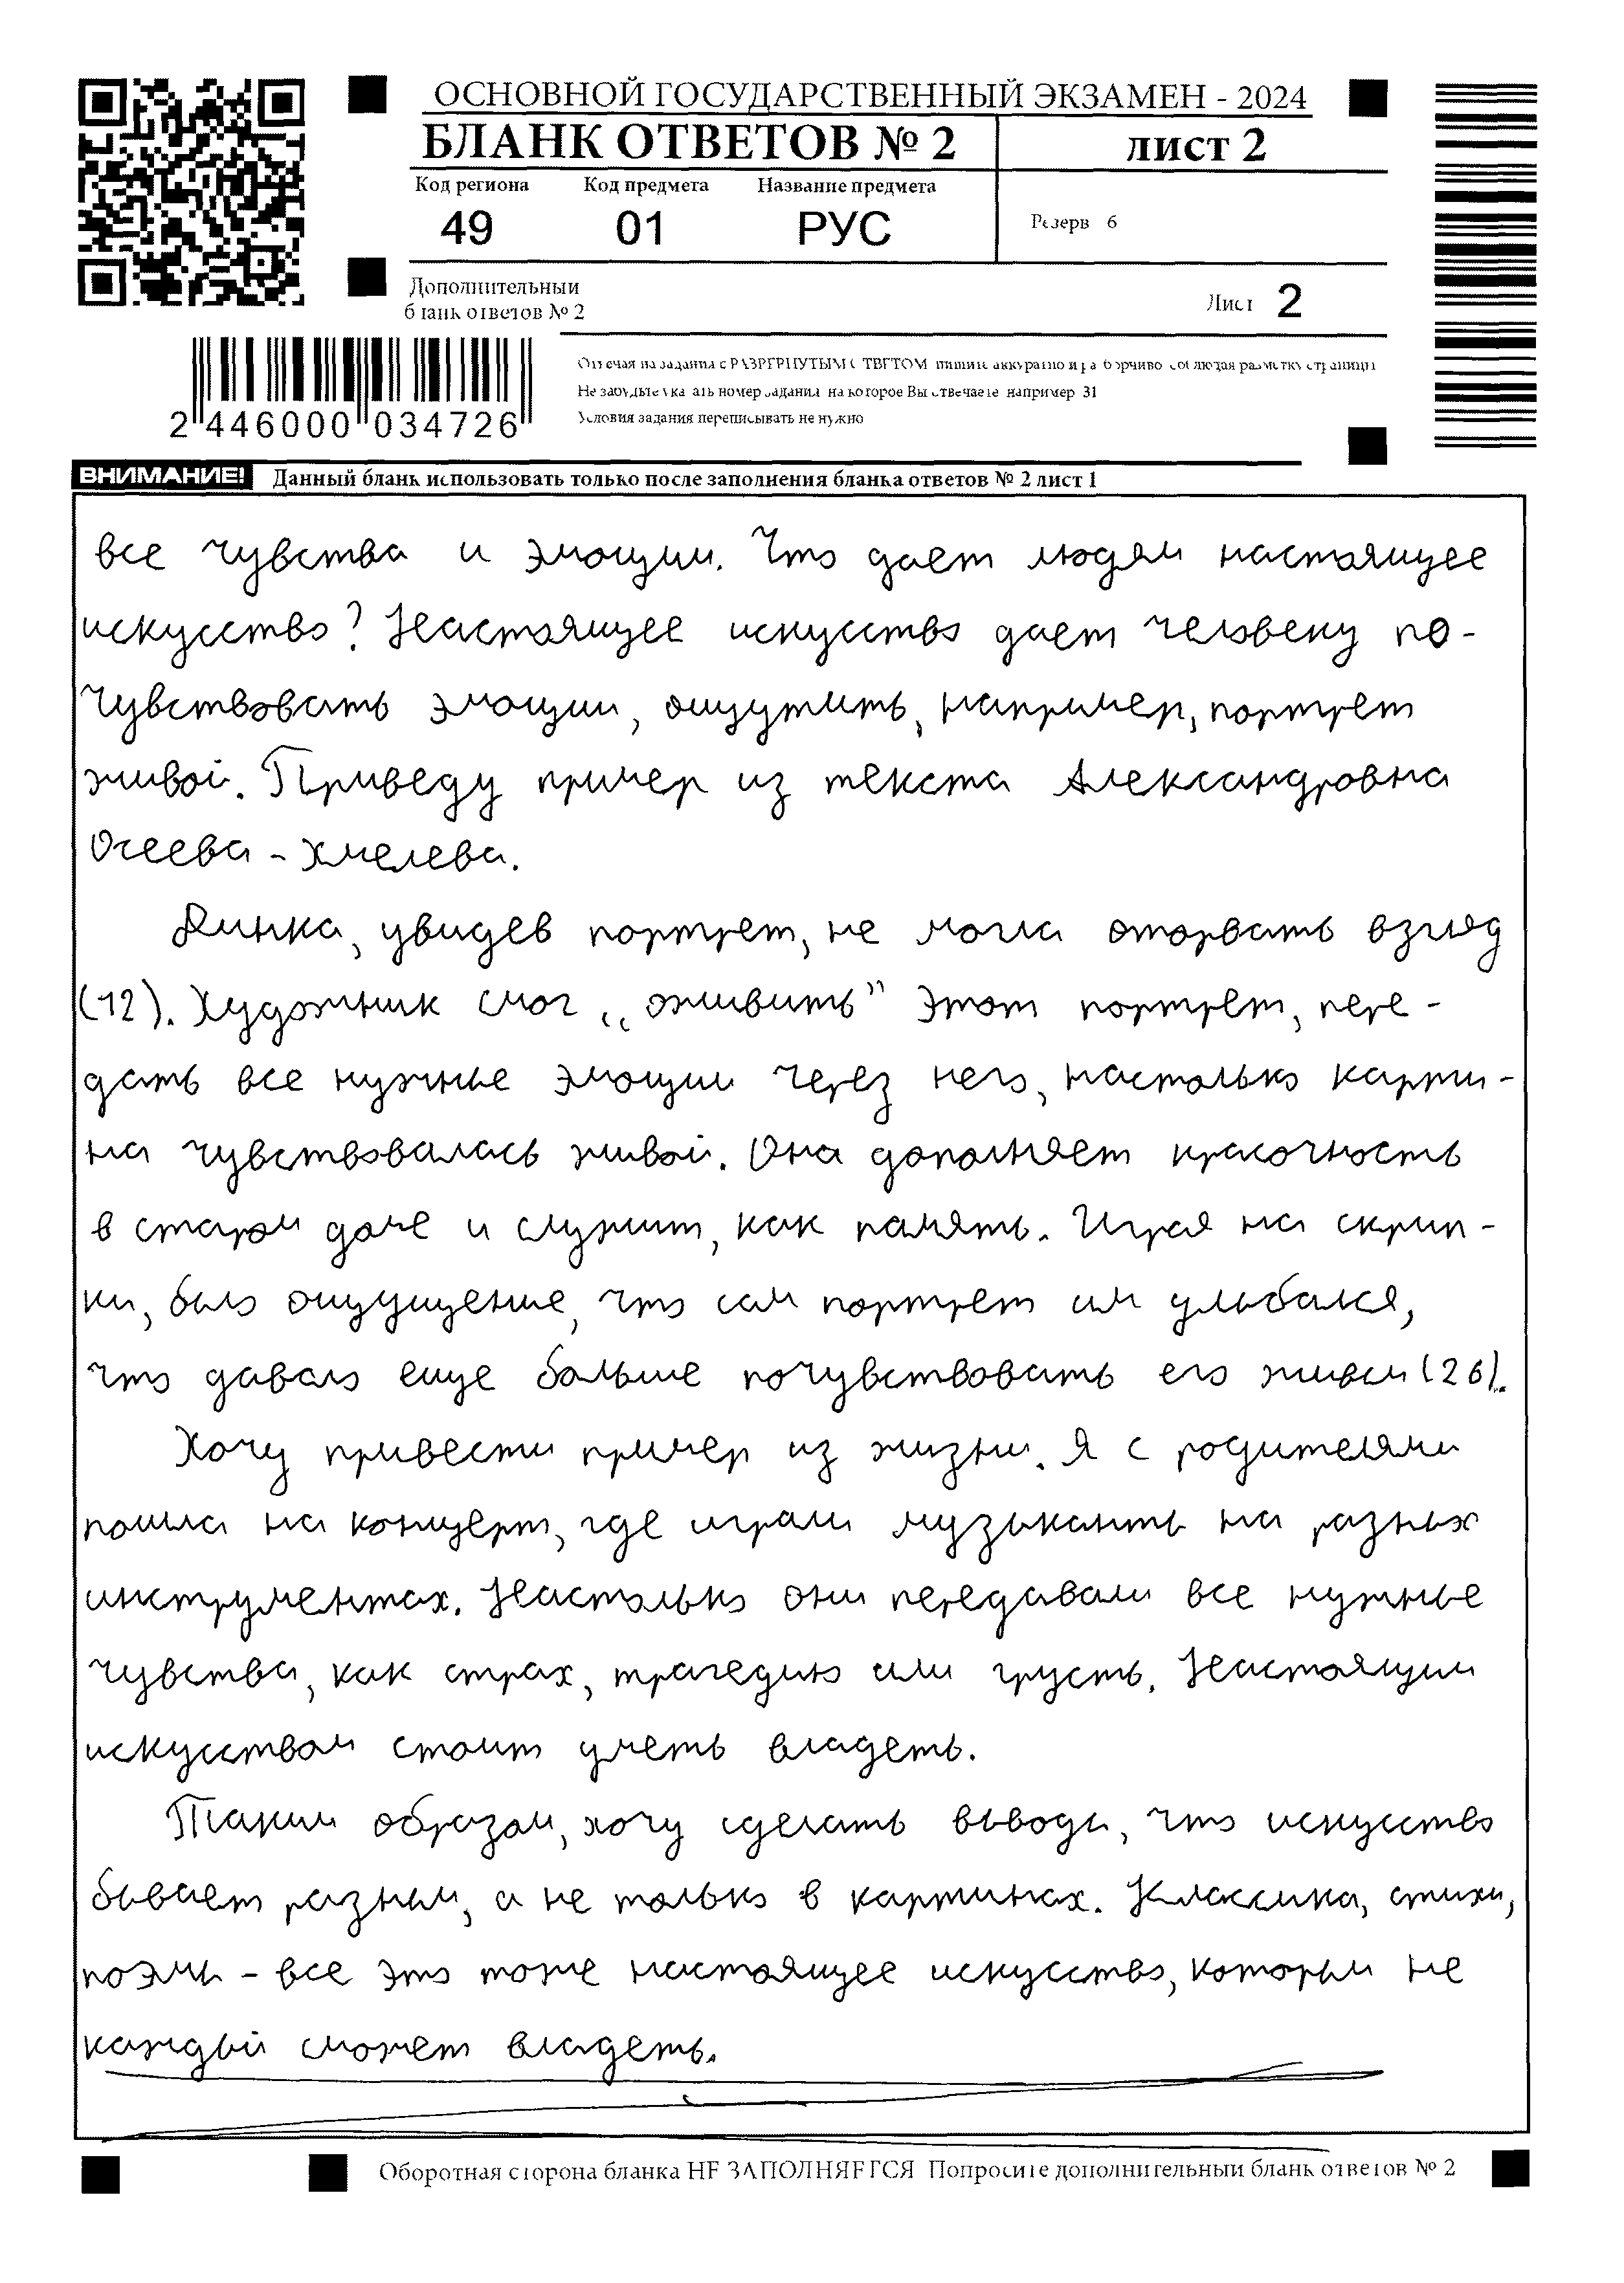 ОСНОВНОЙ ГОСУДАРСТВЕННЫЙ ЭКЗАМЕН - 2024
БЛАНК ОТВЕТОВ № 2
ЛИСТ 2
Код региона Код предмета Название предмета
49 01 РУС
Резерв 6
Дополнительный
бланк ответов № 2
Лист 2
Отвечая на задания с РАЗВЕРНУТЫМ ОТВЕТОМ пишите аккуратно и разборчиво соблюдая разметку страницы
Не забудьте указать номер задания на которое Вы отвечаете например 31
Условия задания переписывать не нужно
2 446000 034726
ВНИМАНИЕ! Данный бланк использовать только после заполнения бланка ответов № 2 лист 1
все чувства и эмоции. Что дает людям настоящее
искусство? Настоящее искусство дает человеку по-
чувствовать эмоции, ощутить, например, портрет
живой. Приведу пример из текста Александровна
Осеева - Хмелева.
Динка, увидев портрет, не могла оторвать взгляд
(12). Художник смог „оживить” этот портрет, пере-
дать все нужные эмоции через него, настолько карти-
на чувствовалась живой. Она дополняет красочность
в старом доме и служит, как память. Играя на скрип-
ки, было ощущение, что сам портрет им улыбался,
что давало еще больше почувствовать его живым (26).
Хочу привести пример из жизни. Я с родителями
пошла на концерт, где играли музыканты на разных
инструментах. Настолько они передавали все нужные
чувства, как страх, трагедию или грусть. Настоящим
искусством стоит уметь владеть.
Таким образом, хочу сделать выводы, что искусство
бывает разным, а не только в картинах. Классика, стихи,
поэмы - все это тоже настоящее искусство, которым не
каждый сможет владеть.
Оборотная сторона бланка НЕ ЗАПОЛНЯЕТСЯ Попросите дополнительный бланк ответов № 2